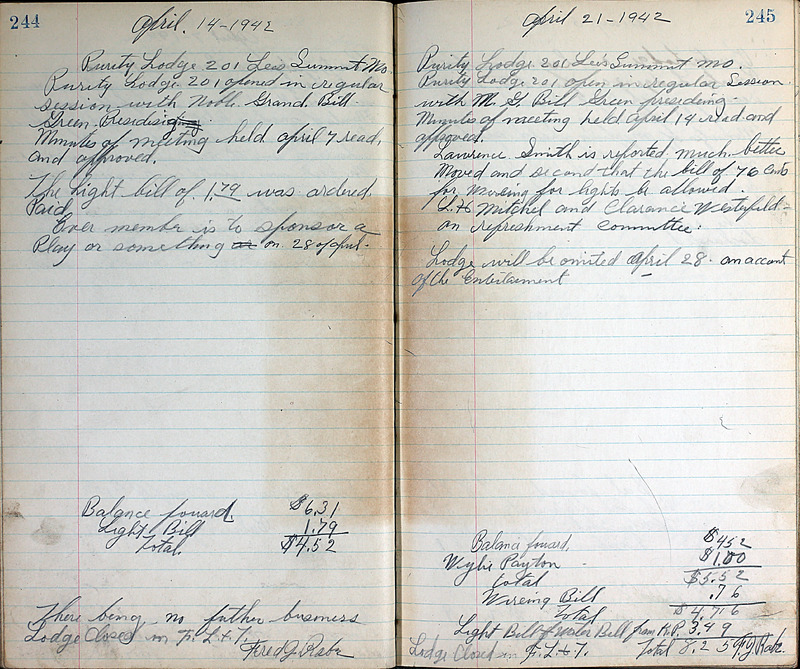 244
April. 14-1942
Purity Lodge 201 Lees Summit Mo
Purity Lodge 201 opened in regular
session with Noble Grand Bill
Green. Presiding
Minutes of meeting held april 7 read,
and approved.
The Light bill of 1.79 was ordered
Paid
Ever member is to sponsor a
Play or something on 28 of april.
Balance foward $6.31
Light Bill 1.79
Total. $4.52
There being no futher business
Lodge Closed in F. L. & T.
Fred J. Rabe
245
April 21-1942
Purity Lodge 201 Lees Summit Mo.
Purity Lodge 201 open in regular Session
with N. G Bill Green presiding.
Minutes of meeting held April 14 read and
approved.
Lawrence Smith is reported much better
Moved and second that the bill of 76 Cents
for Wireing for lights be allowed.
L. H Mitchel and Clarance Westerfield
on refreshment Committee.
Lodge will be omited april 28. on account
of the Entertainment
Balance foward, $4.52
Wylie Payton $1.00
total $5.52
Wireing Bill .76
Total $4.76
Light Bill & Water Bill from K.P. 3.49
Lodge Closed in F. L & T. Total 8.25 F J Rabe.